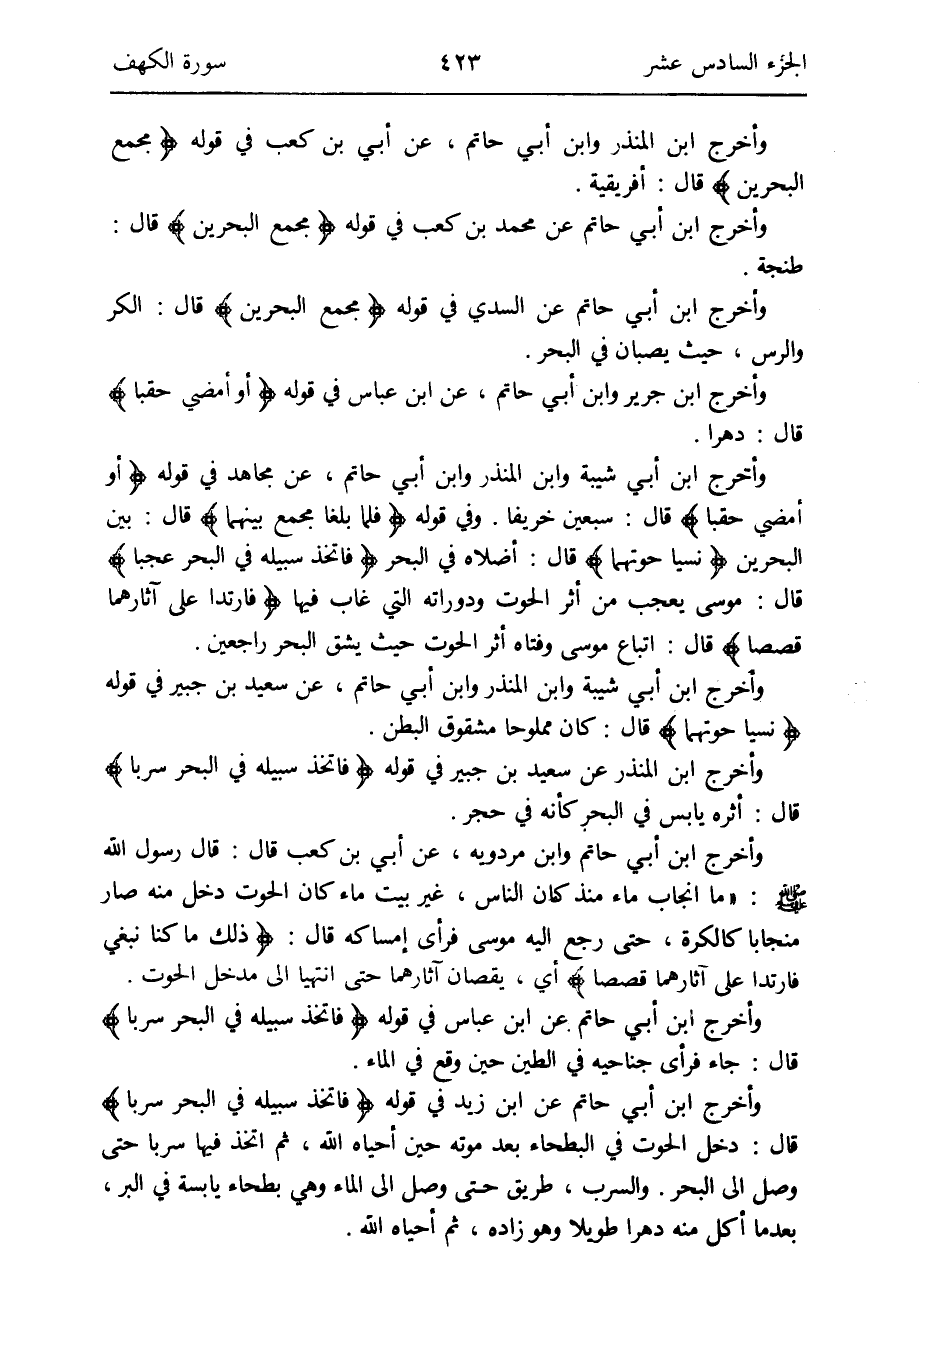 الجزء السادس عشر ٤٢٣ سورة الكهف
وأخرج ابن المنذر وابن أبي حاتم ، عن أبي بن كعب في قوله ﴿ مجمع
البحرين ﴾ قال : أفريقية .
وأخرج ابن أبي حاتم عن محمد بن كعب في قوله ﴿ مجمع البحرين ﴾ قال :
طنجة .
وأخرج ابن أبي حاتم عن السدي في قوله ﴿ مجمع البحرين ﴾ قال : الكر
والرس ، حيث يصبان في البحر .
وأخرج ابن جرير وابن أبي حاتم ، عن ابن عباس في قوله ﴿ أو أمضي حقبا ﴾
قال : دهرا .
وأخرج ابن أبي شيبة وابن المنذر وابن أبي حاتم ، عن مجاهد في قوله ﴿ أو
أمضي حقبا ﴾ قال : سبعين خريفا . وفي قوله ﴿ فلما بلغا مجمع بينهما ﴾ قال : بين
البحرين ﴿ نسيا حوتهما ﴾ قال : أضلاه في البحر ﴿ فاتخذ سبيله في البحر عجبا ﴾
قال : موسى يعجب من أثر الحوت ودوراته التي غاب فيها ﴿ فارتدا على آثارهما
قصصا ﴾ قال : اتباع موسى وفتاه أثر الحوت حيث يشق البحر راجعين .
وأخرج ابن أبي شيبة وابن المنذر وابن أبي حاتم ، عن سعيد بن جبير في قوله
﴿ نسيا حوتهما ﴾ قال : كان مملوحا مشقوق البطن .
وأخرج ابن المنذر عن سعيد بن جبير في قوله ﴿ فاتخذ سبيله في البحر سربا ﴾
قال : أثره يابس في البحر كأنه في حجر .
وأخرج ابن أبي حاتم وابن مردويه ، عن أبي بن كعب قال : قال رسول الله
ﷺ : « ما انجاب ماء منذ كان الناس ، غير بيت ماء كان الحوت دخل منه صار
منجابا كالكرة ، حتى رجع اليه موسى فرأى إمساكه قال : ﴿ ذلك ما كنا نبغي
فارتدا على آثارهما قصصا ﴾ أي ، يقصان آثارهما حتى انتهيا الى مدخل الحوت .
وأخرج ابن أبي حاتم عن ابن عباس في قوله ﴿ فاتخذ سبيله في البحر سربا ﴾
قال : جاء فرأى جناحيه في الطين حين وقع في الماء .
وأخرج ابن أبي حاتم عن ابن زيد في قوله ﴿ فاتخذ سبيله في البحر سربا ﴾
قال : دخل الحوت في البطحاء بعد موته حين أحياه الله ، ثم اتخذ فيها سربا حتى
وصل الى البحر . والسرب ، طريق حتى وصل الى الماء وهي بطحاء يابسة في البر ،
بعدما أكل منه دهرا طويلا وهو زاده ، ثم أحياه الله .